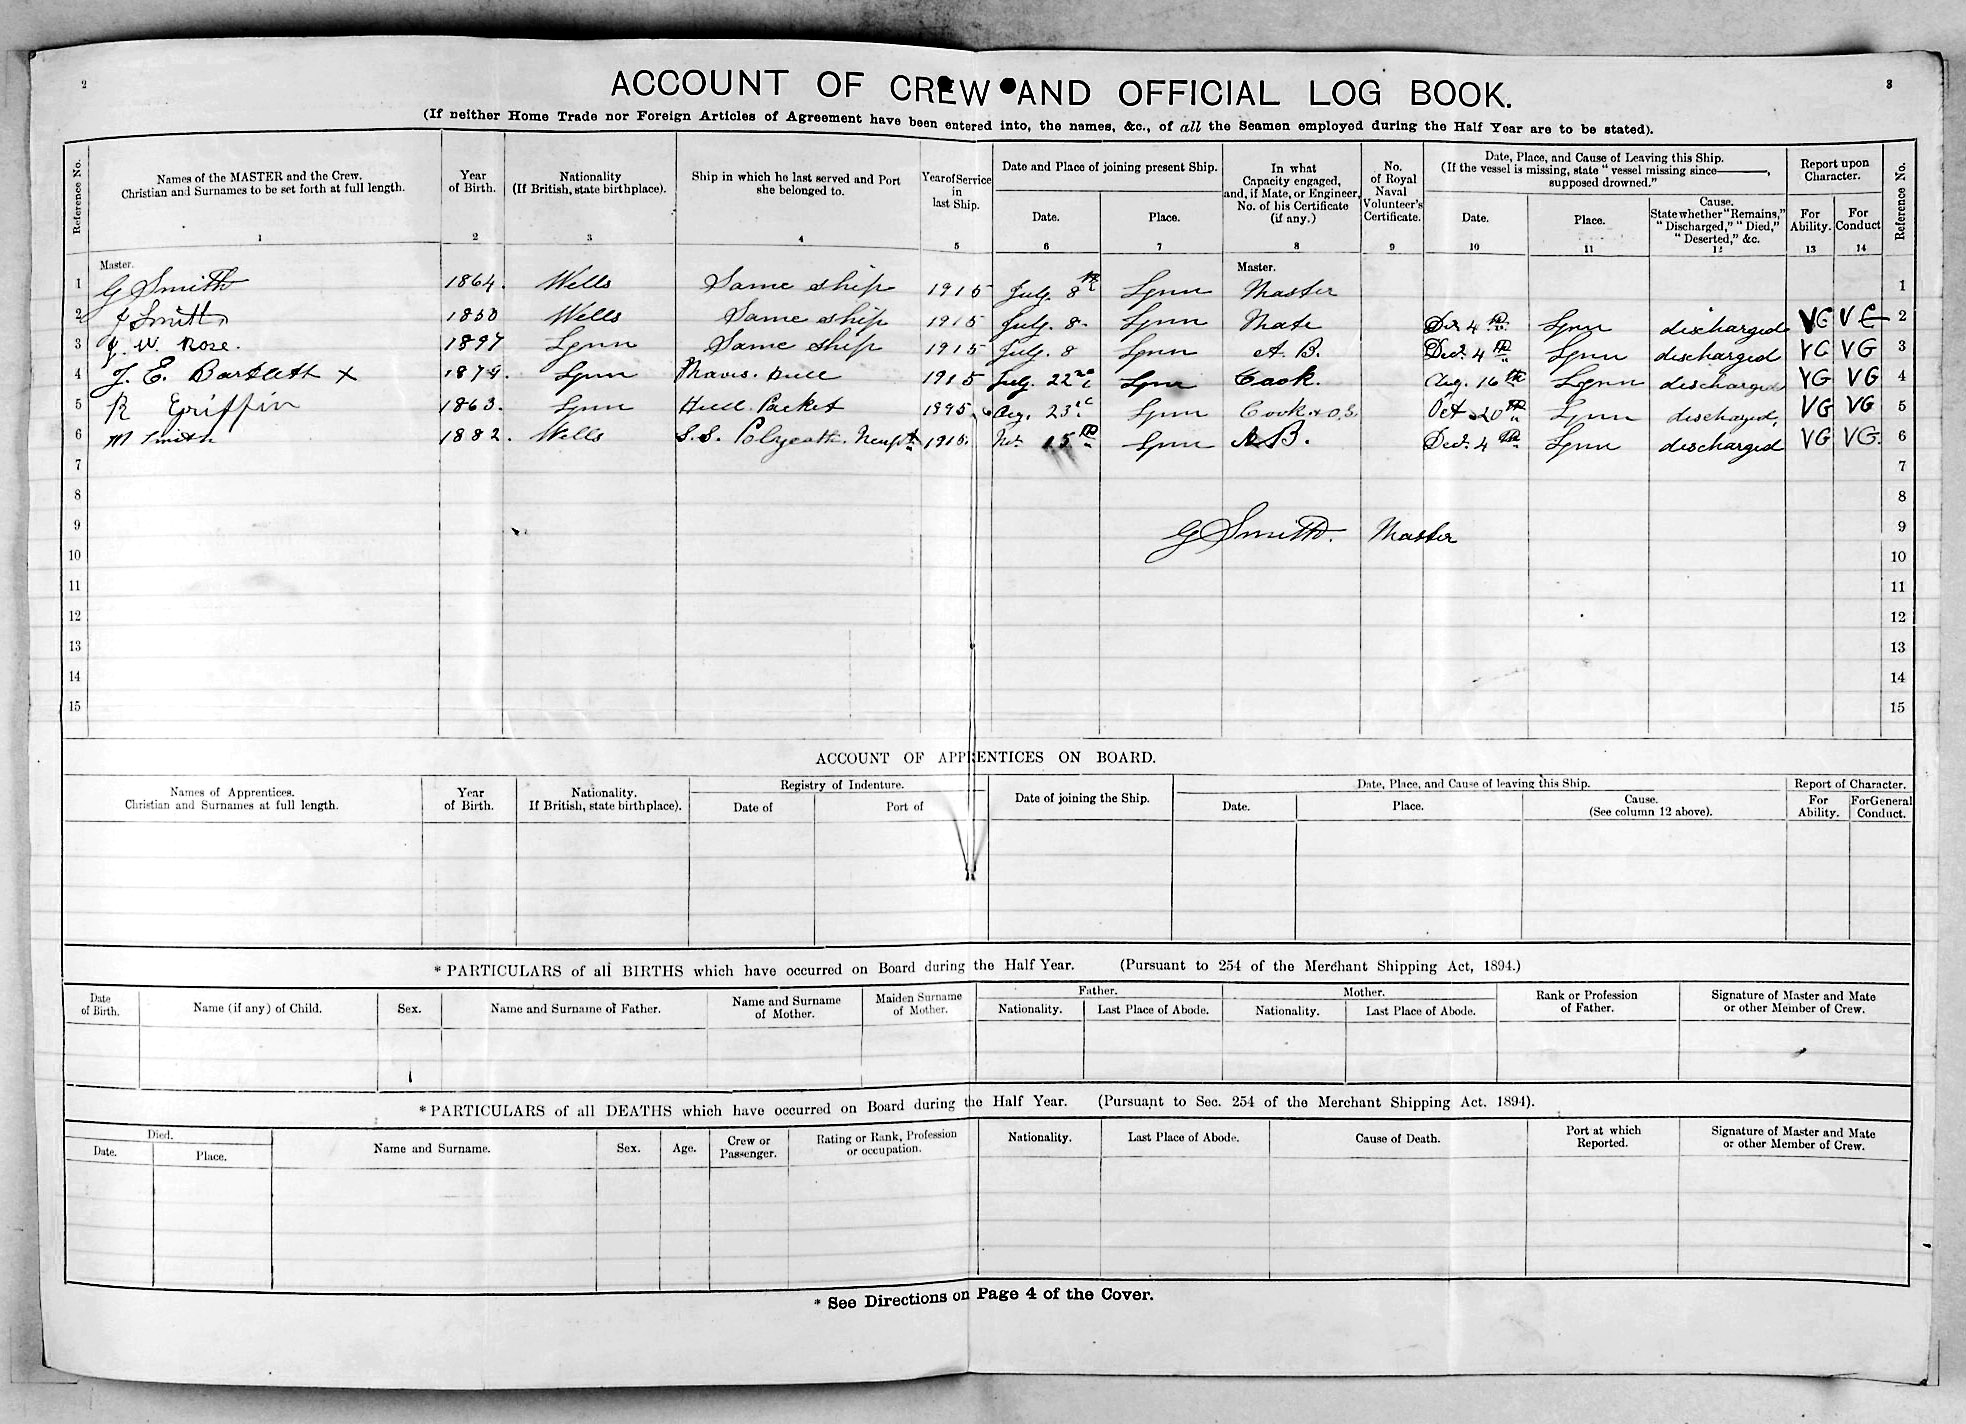 2
3
ACCOUNT OF CREW AND OFFICIAL LOG BOOK.
(If neither Home Trade nor Foreign Articles of Agreement have been entered into, the names, &c., of all the Seamen employed during the Half Year are to be stated).
Reference No.
Names of the MASTER and the Crew.
Christian and Surnames to be set forth at full length.
1
Year
of Birth.
2
Nationality
(If British, state birthplace).
3
Ship in which he last served and Port
she belonged to.
4
Year of Service
in
last Ship.
5
Date and Place of joining present Ship.
Date.
6
Place.
7
In what
Capacity engaged,
and, if Mate, or Engineer,
No. of his Certificate
(if any.)
8
No.
of Royal
Naval
Volunteer's
Certificate.
9
Date, Place, and Cause of Leaving this Ship.
(If the vessel is missing, state "vessel missing since ———,
supposed drowned."
Date.
10
Place.
11
Cause.
State whether "Remains,"
"Discharged," "Died,"
"Deserted," &c.
12
Report upon
Character.
For
Ability.
13
For
Conduct
14
Reference No.
Master.
Master.
1 G Smith 1864. Wells Same ship 1915 July. 8th Lynn Master 1
2 J Smith 1850 Wells Same ship 1915 July. 8. Lynn Mate Dec 4th Lynn discharged VG VG 2
3 J. W. Rose. 1897 Lynn Same ship 1915 July. 8 Lynn A. B. Dec. 4th Lynn discharged VG VG 3
4 J. E. Bartlett x 1879. Lynn Mavis. Hull 1915 July. 22nd Lynn Cook. Aug. 16th Lynn discharged VG VG 4
5 R Griffin 1863. Lynn Hull. Packet Aug. 23rd Lynn Cook & O.S. Oct 20th Lynn discharged, VG VG 5
6 M Smith 1882. Wells S.S. 1915. Nov. 15th Lynn A B. Dec. 4th Lynn discharged VG VG. 6
7 7
8 8
9 G Smith. Master 9
10 10
11 11
12 12
13 13
14 14
15 15
ACCOUNT OF APPRENTICES ON BOARD.
Names of Apprentices.
Christian and Surnames at full length.
Year
of Birth.
Nationality.
If British, state birthplace).
Registry of Indenture.
Date of
Port of
Date of joining the Ship.
Date, Place, and Cause of leaving this Ship.
Date.
Place.
Cause.
(See column 12 above).
Report of Character.
For
Ability.
For General
Conduct.
* PARTICULARS of all BIRTHS which have occurred on Board during the Half Year. (Pursuant to 254 of the Merchant Shipping Act, 1894.)
Date
of Birth.
Name (if any) of Child.
Sex.
Name and Surname of Father.
Name and Surname
of Mother.
Maiden Surname
of Mother.
Father.
Nationality.
Last Place of Abode.
Mother.
Nationality.
Last Place of Abode.
Rank or Profession
of Father.
Signature of Master and Mate
or other Member of Crew.
* PARTICULARS of all DEATHS which have occurred on Board during the Half Year. (Pursuant to Sec. 254 of the Merchant Shipping Act. 1894).
Died.
Date.
Place.
Name and Surname.
Sex.
Age.
Crew or
Passenger.
Rating or Rank, Profession
or occupation.
Nationality.
Last Place of Abode.
Cause of Death.
Port at which
Reported.
Signature of Master and Mate
or other Member of Crew.
* See Directions on Page 4 of the Cover.